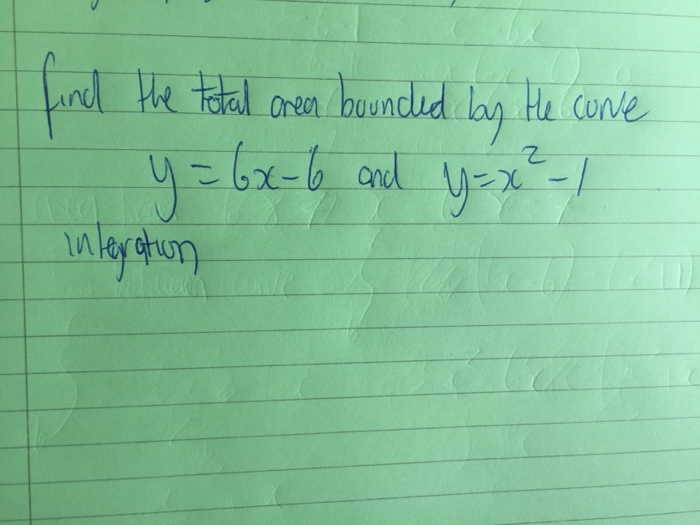 find the total area bounded by the curve
y = 6x - 6 and y = x² - 1
integration